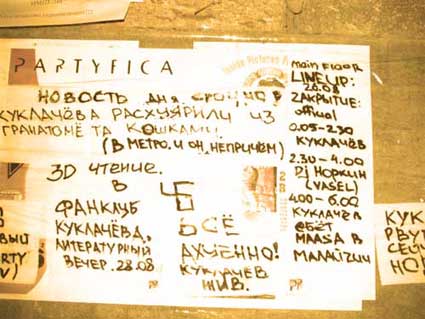 PARTYFICA
НОВОСТЬ ДНЯ СРОЧНО!
КУКЛАЧЁВА РАСХУЯРИЛИ ИЗ
ГРАНАТОМЁТА КОШКАМИ
(В МЕТРО. И ОН НЕПРИЧЁМ)
3D ЧТЕНИЕ.
В
ФАНКЛУБ
КУКЛАЧЁВА,
ЛИТЕРАТУРНЫЙ
ВЕЧЕР. 28.08
ВСЁ
АХУЕННО!
КУКЛАЧЁВ
ЖИВ.
main FlooR
LINEUP:
20.08
ЗАКРЫТИЕ:
official
0.05-2.30
КУКЛАЧЁВ
2.30-4.00
Dj НОРКИН
(VASEL)
4.00-6.00
КУКЛАЧЁВ
MAASA В
МАЛАЙЗИИ
КУК